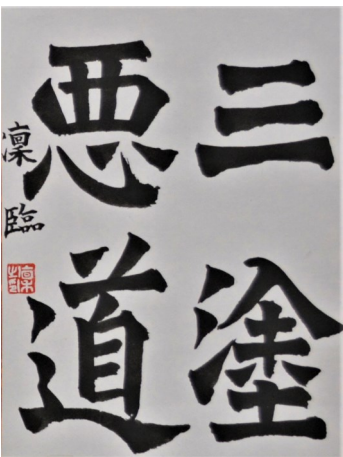 三塗
悪道
凜臨